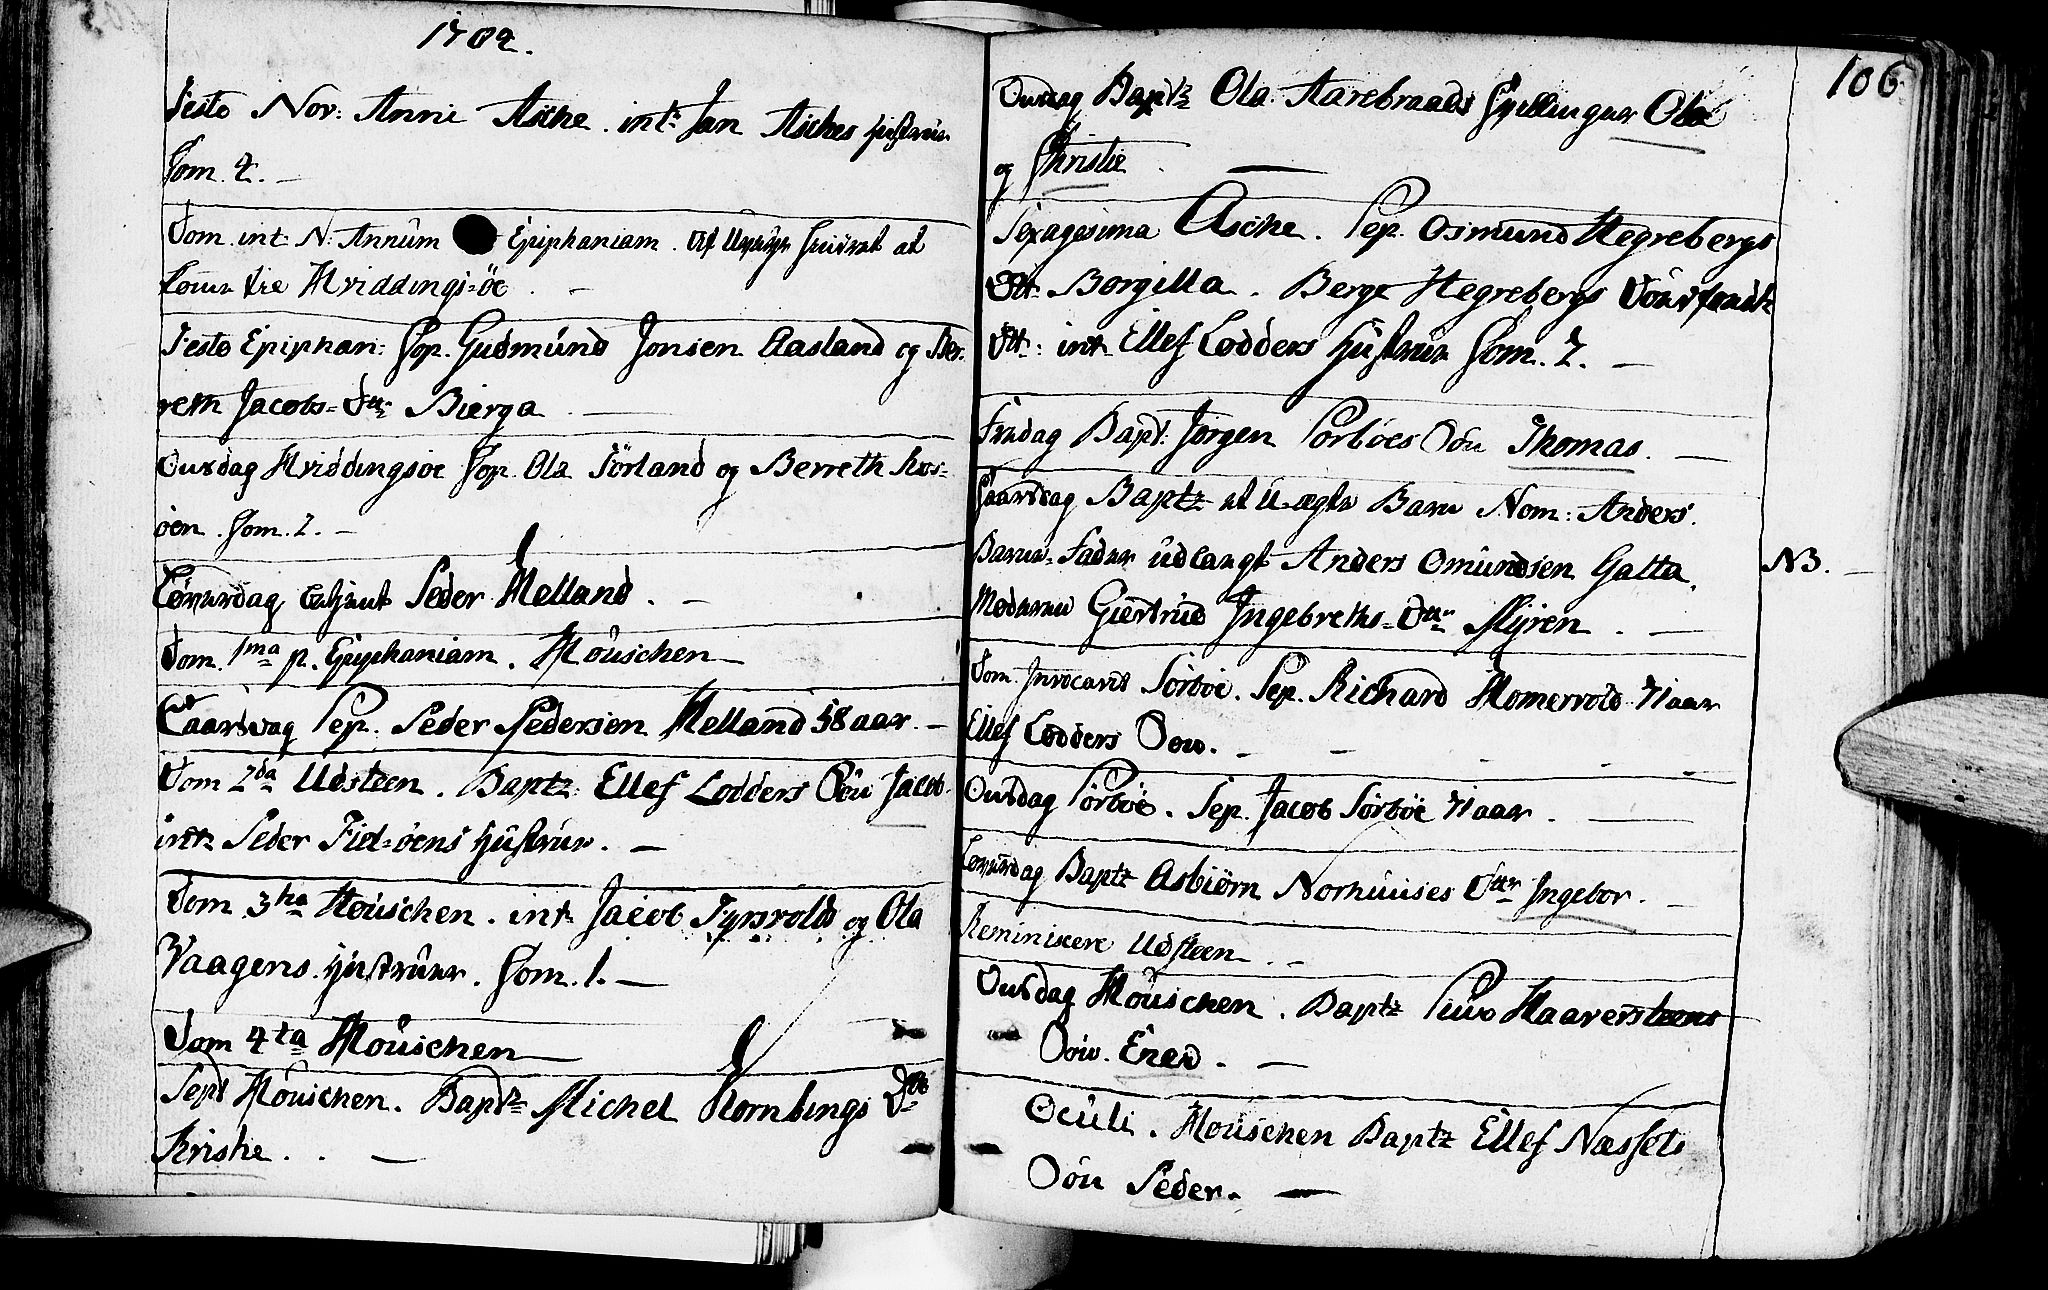 1702.
Festo Nov: Anni Aske. intr. Jan Askes Hustrue
Com. 4. -
Dom. int. N. Annum Epiphaniam. at
Hviddings-öe. -
Festo Epiphan: Cop. Gudmund Jonsen Aasland og Ber-
reth Jacobs-Dttr Bierga
Onsdag Hviddingsöe Cop. Ola Sörland og Berreth Ros-
öen. Com. 2. -
Löverdag Peder Melland. -
Dom. 1ma p. Epiphaniam. Mouschen -
Sep. Peder Pedersen Melland 58 aar. -
Dom 2da Udsteen. Baptz. Ellef Lodders Sön Jacob.
intr. Peder Fiel-öens Hustrue. -
Dom 3tia Mouschen. intr. Jacob og Ola
Vaagens Hustruer. Com. 1. -
Dom 4ta Mouschen
Sept Mouschen. Baptz Michel Dttr
Kristie. . . -
106
Onsdag Baptz Ola Aarebraads Ola
og Christie. -
Sexagesima Aske. Sep. Osmund Hegrebergs
Dttr. Borgilla. Berge Hegrebergs
Dttr: intr Ellef Lodders Hustrue Com. 2. -
Fredag Bapt: Jörgen Sorböes Sön Thomas. -
Baptz et U-ægte Barn Nom: Anders.
Barne-Fader udlangt Anders Omundsen Galta. NB. -
Moderen Giertrud Ingebreths-Dttr Myren. -
Dom. Invocavit Sörböe. Sep. Richard 71 aar
Ellef Lodders Sön. - -
Onsdag Sörböe. Sep. Jacob Sörböe 71 aar. -
Löverdag Baptz Asbiörn Norhuuses Dttr Ingebor. -
Reminiscere Udsteen. -
Onsdag Mouschen. Baptz Haaversteens
Sön. -
Oculi. Mouschen Baptz Ellef Næssets
Sön Peder. -